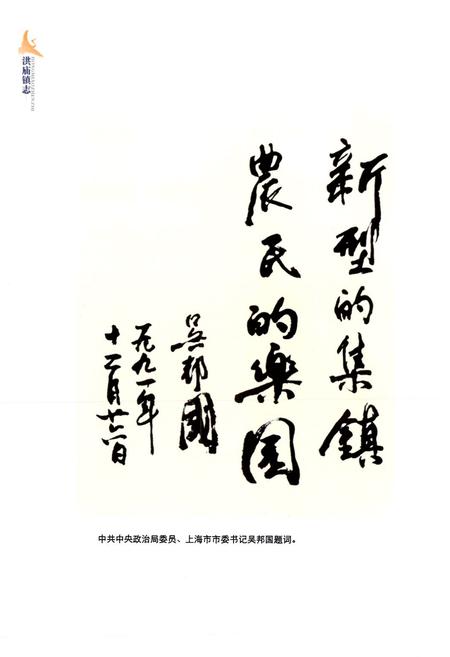 洪庙镇志
HONGMIAOZHENZHI
新型的集鎮
農民的樂园
吴邦國
一九九一年
十二月廿六日
中共中央政治局委员、上海市市委书记吴邦国题词。